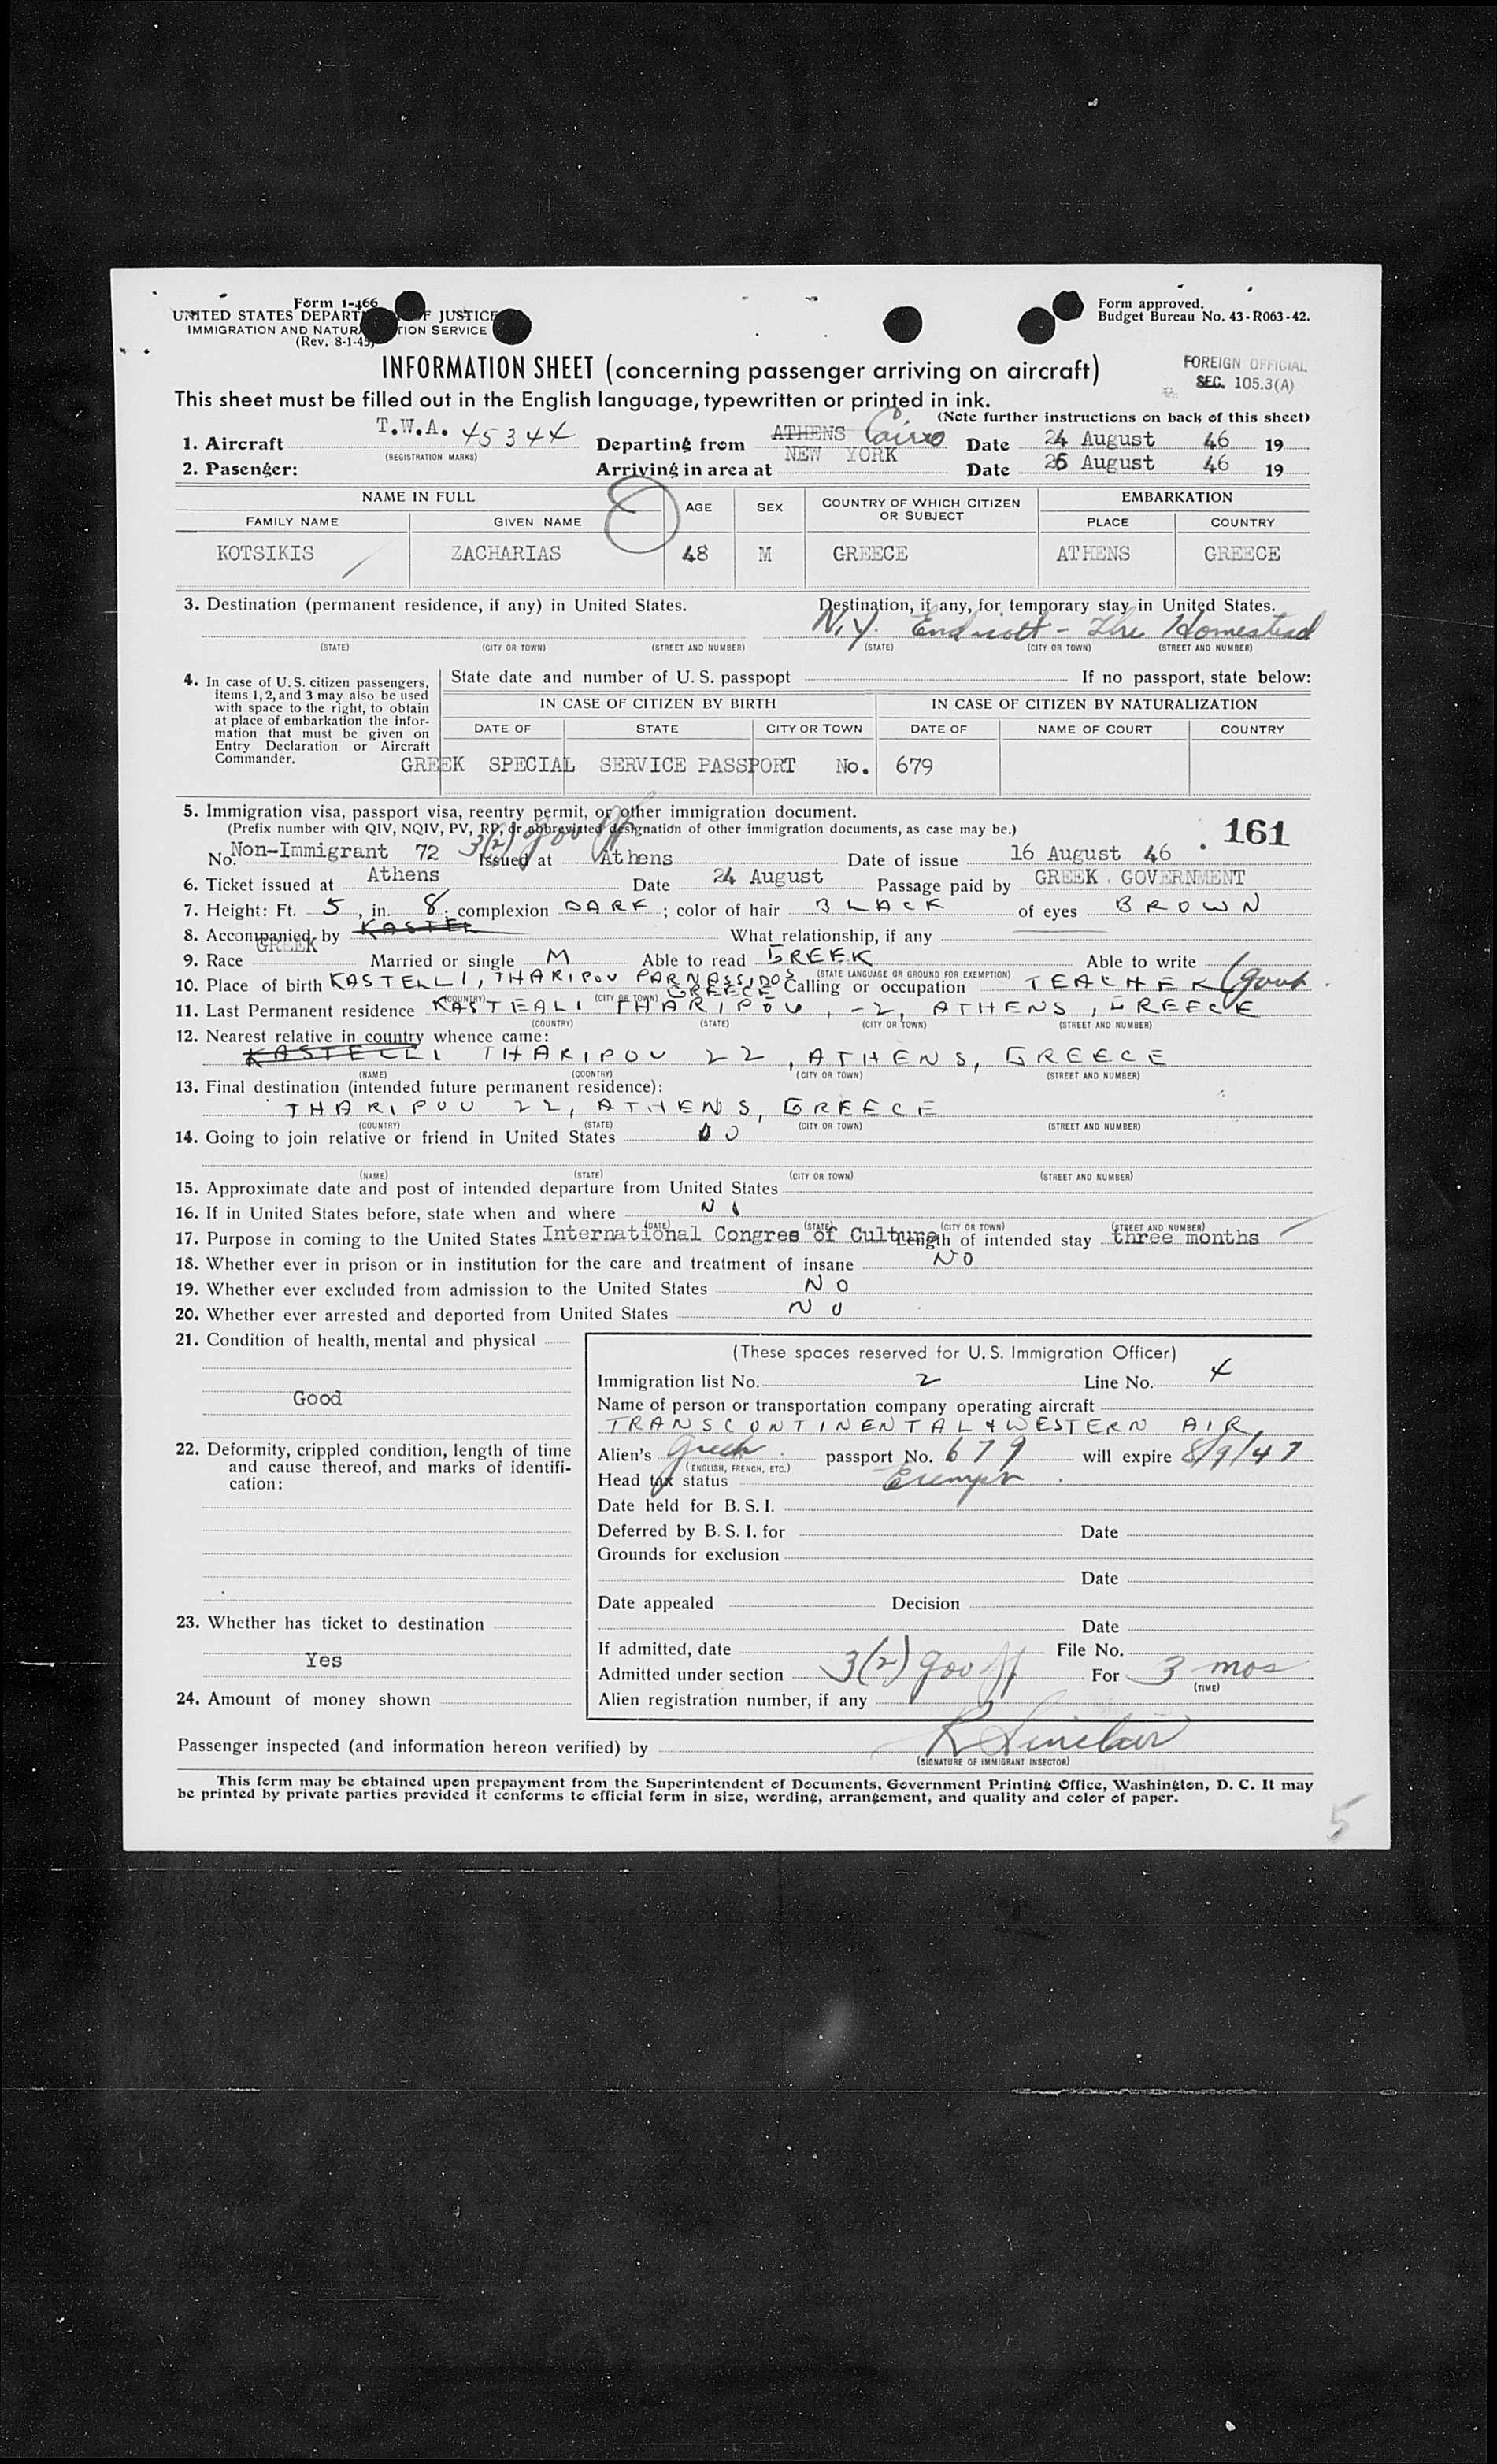 Form 1-466
UNITED STATES DEPART F JUSTICE
IMMIGRATION AND NATURA TION SERVICE
(Rev. 8-1-45)
Form approved.
Budget Bureau No. 43-R063-42.
INFORMATION SHEET (concerning passenger arriving on aircraft)
FOREIGN OFFICIAL
SEC. 105.3(A)
This sheet must be filled out in the English language, typewritten or printed in ink.
(Note further instructions on back of this sheet)
1. Aircraft T.W.A. 45344 Departing from ATHENS Cairo Date 24 August 46 19
(REGISTRATION MARKS)
2. Pasenger: Arriving in area at NEW YORK Date 26 August 46 19
NAME IN FULL AGE SEX COUNTRY OF WHICH CITIZEN OR SUBJECT EMBARKATION
FAMILY NAME GIVEN NAME PLACE COUNTRY
KOTSIKIS ZACHARIAS 48 M GREECE ATHENS GREECE
3. Destination (permanent residence, if any) in United States. Destination, if any, for temporary stay in United States.
N.Y. Endicott - The Homestead
(STATE) (CITY OR TOWN) (STREET AND NUMBER) (STATE) (CITY OR TOWN) (STREET AND NUMBER)
4. In case of U.S. citizen passengers, items 1, 2, and 3 may also be used with space to the right, to obtain at place of embarkation the information that must be given on Entry Declaration or Aircraft Commander.
State date and number of U.S. passpopt If no passport, state below:
IN CASE OF CITIZEN BY BIRTH IN CASE OF CITIZEN BY NATURALIZATION
DATE OF STATE CITY OR TOWN DATE OF NAME OF COURT COUNTRY
GREEK SPECIAL SERVICE PASSPORT No. 679
5. Immigration visa, passport visa, reentry permit, or other immigration document.
(Prefix number with QIV, NQIV, PV, RP, or abbreviated designation of other immigration documents, as case may be.)
161
No. Non-Immigrant 72 3(2) gov Issued at Athens Date of issue 16 August 46
6. Ticket issued at Athens Date 24 August Passage paid by GREEK GOVERNMENT
7. Height: Ft. 5, in. 8; complexion DARK; color of hair BLACK of eyes BROWN
8. Accompanied by KASTEL What relationship, if any
9. Race GREEK Married or single M Able to read GREEK Able to write
(STATE LANGUAGE OR GROUND FOR EXEMPTION)
10. Place of birth KASTELLI, THARIPOU PARNASSIDOS GREECE Calling or occupation TEACHER (govt
(COUNTRY) (CITY OR TOWN)
11. Last Permanent residence KASTEALI THARIPOU, -2, ATHENS, GREECE
(COUNTRY) (STATE) (CITY OR TOWN) (STREET AND NUMBER)
12. Nearest relative in country whence came:
KASTELLI THARIPOU 22, ATHENS, GREECE
(NAME) (COONTRY) (CITY OR TOWN) (STREET AND NUMBER)
13. Final destination (intended future permanent residence):
THARIPOU 22, ATHENS, GREECE
(COUNTRY) (STATE) (CITY OR TOWN) (STREET AND NUMBER)
14. Going to join relative or friend in United States
(NAME) (STATE) (CITY OR TOWN) (STREET AND NUMBER)
15. Approximate date and post of intended departure from United States
16. If in United States before, state when and where
(DATE) (STATE) (CITY OR TOWN) (STREET AND NUMBER)
17. Purpose in coming to the United States International Congres of Culture Length of intended stay three months
18. Whether ever in prison or in institution for the care and treatment of insane NO
19. Whether ever excluded from admission to the United States NO
20. Whether ever arrested and deported from United States NO
21. Condition of health, mental and physical
Good
22. Deformity, crippled condition, length of time and cause thereof, and marks of identification:
23. Whether has ticket to destination
Yes
24. Amount of money shown
(These spaces reserved for U.S. Immigration Officer)
Immigration list No. 2 Line No. 4
Name of person or transportation company operating aircraft
TRANSCONTINENTAL & WESTERN AIR,
Alien's Greek passport No. 679 will expire 8/9/47
(ENGLISH, FRENCH, ETC.)
Head tax status Exempt
Date held for B.S.I.
Deferred by B.S.I. for Date
Grounds for exclusion
Date
Date appealed Decision
Date
If admitted, date File No.
Admitted under section 3(2) gov For 3 mos
(TIME)
Alien registration number, if any
Passenger inspected (and information hereon verified) by R Sinclair
(SIGNATURE OF IMMIGRANT INSECTOR)
This form may be obtained upon prepayment from the Superintendent of Documents, Government Printing Office, Washington, D. C. It may
be printed by private parties provided it conforms to official form in size, wording, arrangement, and quality and color of paper.
5